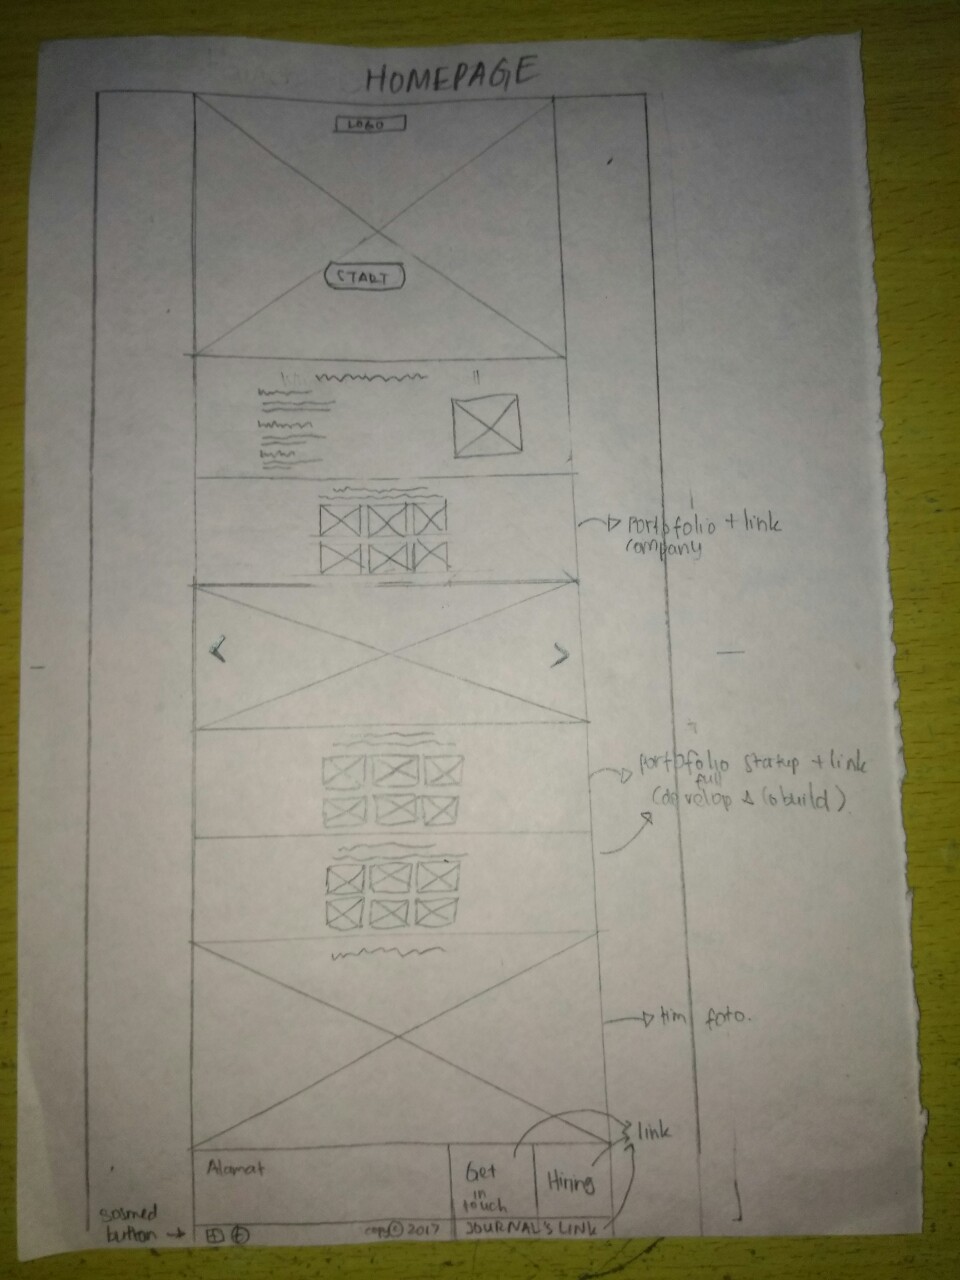 HOMEPAGE
LOGO
START
portofolio + link
company
portofolio startup + link
full
(develop & cobuild)
tim foto.
link
Alamat
Get
in
touch
Hiring
sosmed
button
copy © 2017
JOURNAL'S LINK